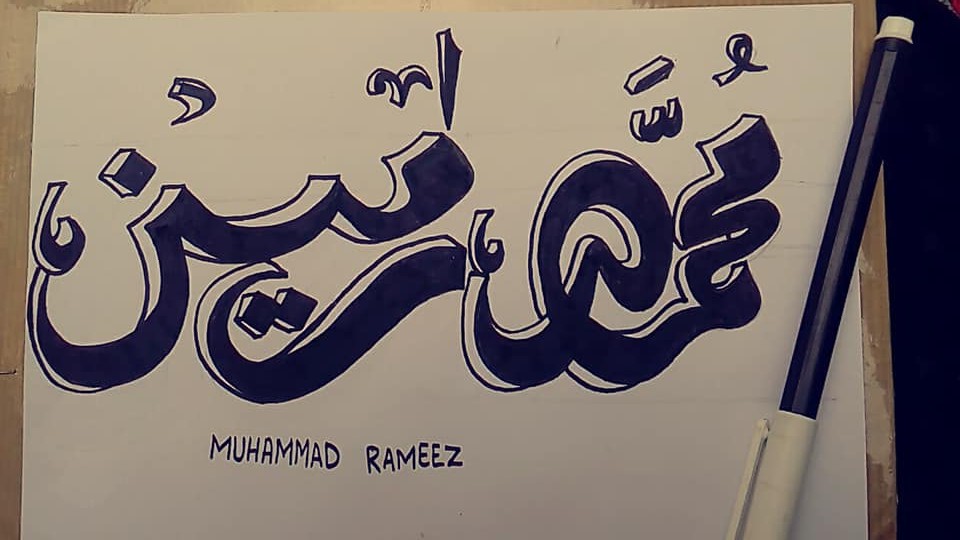 مُحمَّد رمیز
MUHAMMAD RAMEEZ